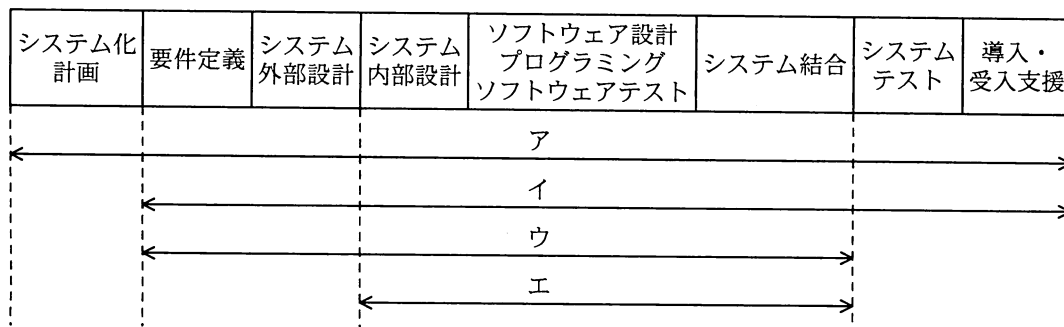 システム化
計画
要件定義
システム
外部設計
システム
内部設計
ソフトウェア設計
プログラミング
ソフトウェアテスト
システム結合
システム
テスト
導入・
受入支援
ア
イ
ウ
エ